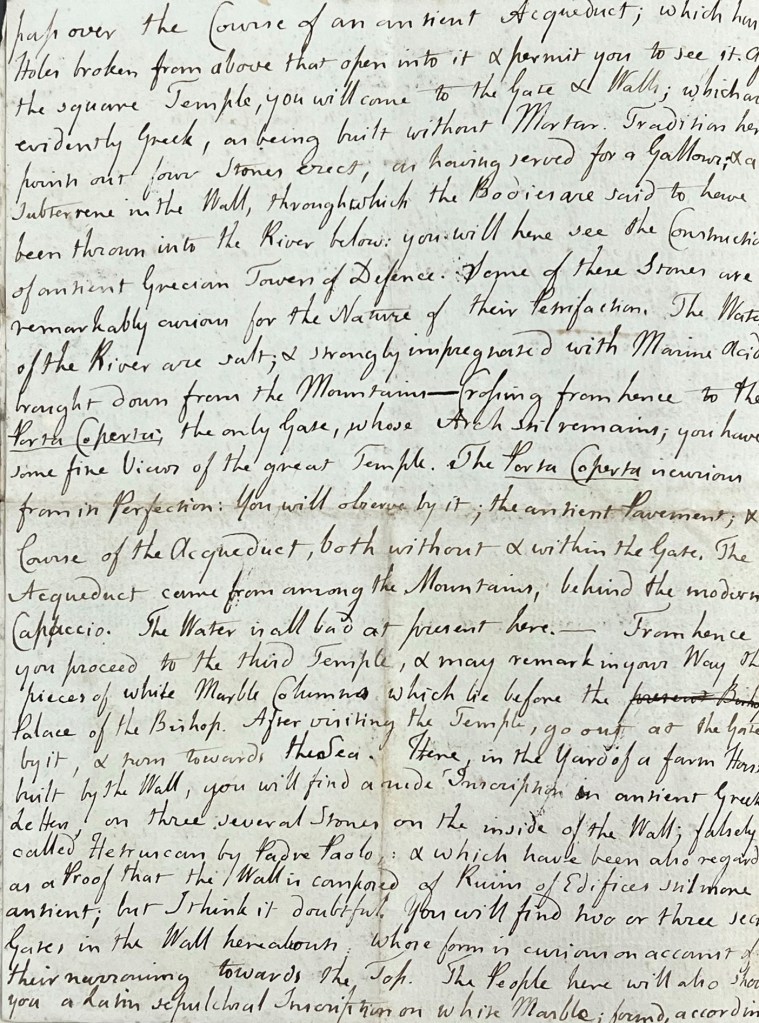 pass over the Course of an antient Acqueduct; which has
Holes broken from above that open into it & permit you to see it.
the square Temple, you will come to the Gate & Walls; which
evidently Greek, as being built without Mortar. Tradition
points out four Stones erect, as having served for a Gallows; & a
Subterrene in the Wall, through which the Bodies are said to have
been thrown into the River below: you will here see the
of antient Grecian Towers of Defence. Some of these Stones are
remarkably curious for the Nature of their Petrifaction. The
of the River are salt; & strongly impregnated with Marine Acid
brought down from the Mountains — Crossing from hence to the
Porta Coperta; the only Gate, whose Arch stil remains; you have
some fine Views of the great Temple. The Porta Coperta is curious
from its Perfection: You will observe by it; the antient Pavement; &
Course of the Acqueduct, both without & within the Gate. The
Acqueduct came from among the Mountains, behind the modern
Capaccio. The Water is all bad at present here. — From hence
you proceed to the third Temple, & may remark in your Way
pieces of white Marble Columns which lie before the present
Palace of the Bishop. After visiting the Temple, go out at the Gate
by it, & turn towards the Sea. Here, in the Yard of a farm
built by the Wall, you will find a rude Inscription in antient Greek
Letters, on three several Stones on the inside of the Wall; falsely
called Hetruscan by Padre Paolo: & which have been also
as a Proof that the Wall is composed of Ruins of Edifices stil more
antient; but I think it doubtful. You will find two or three
Gates in the Wall hereabouts, whose form is curious on account of
their narrowing towards the Top. The People here will also
you a Latin sepulchral Inscription on white Marble; found,